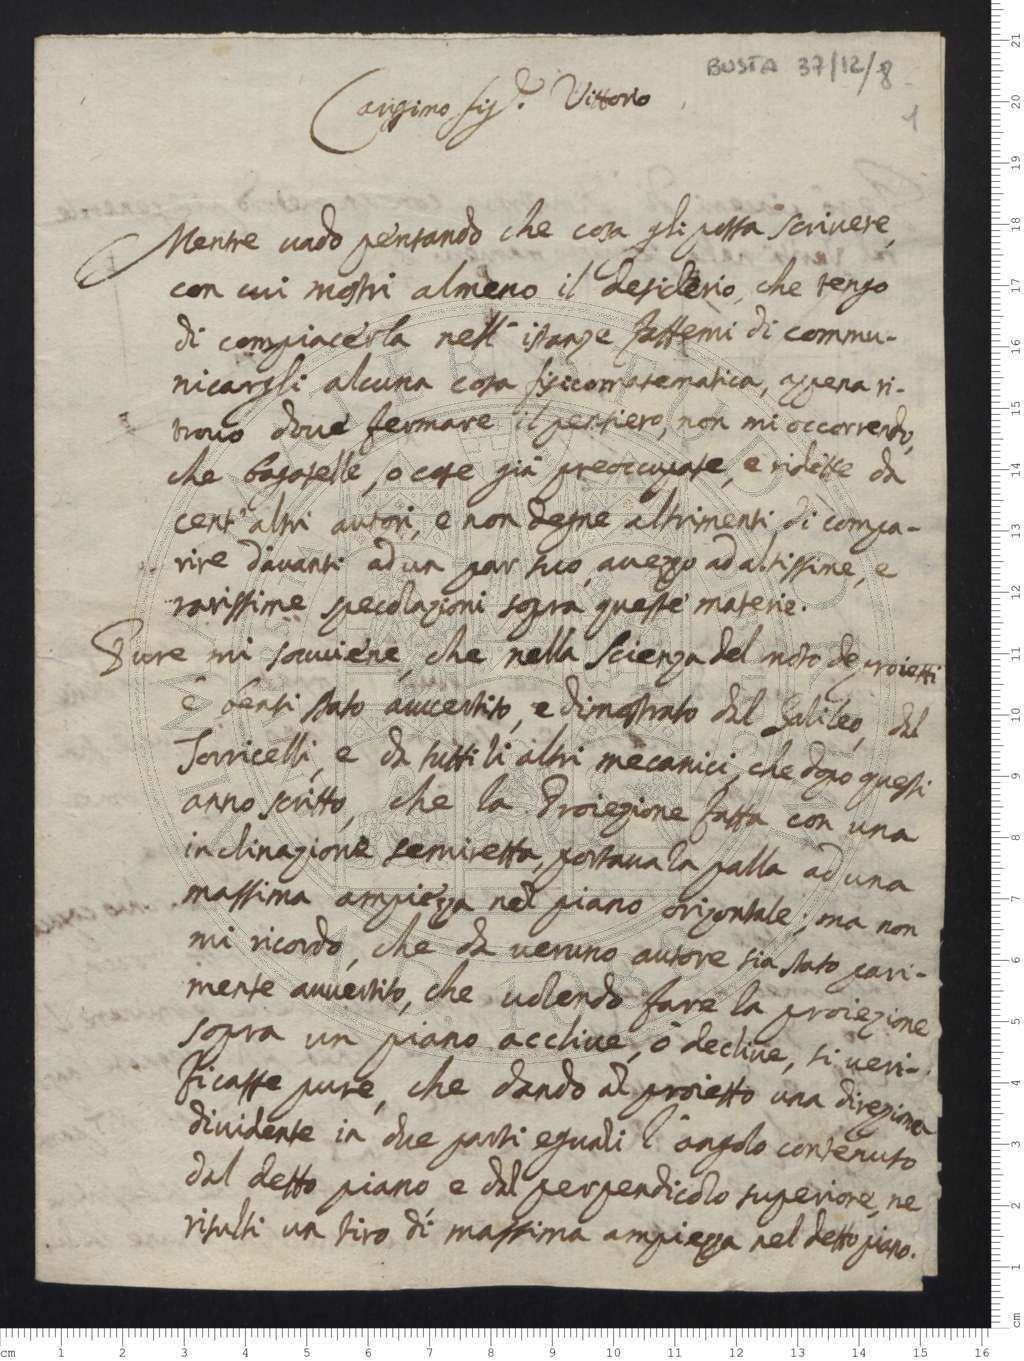 BUSTA 37/12/8
1
Carissimo Sig.r Vittorio
Mentre uado pensando che cosa gli possa scriuere,
con cui mostri almeno il desiderio, che tengo
di compiacerla nell' istanze fattemi di commu-
nicargli alcuna cosa fisicomatematica, appena ri-
trouo doue fermare il pensiero, non mi occorrendo,
che bagatelle, o cose già preoccupate, e ridette da
cent' altri autori, e non degne altrimenti di compa-
rire dauanti ad un par suo, auezzo ad altissime, e
rarissime specolazioni sopra queste materie.
Pure mi souuiene, che nella Scienza del moto de proietti
è bensi stato auuertito, e dimostrato dal Galileo, dal
Torricelli, e da tutti li altri mecanici, che dopo questi
anno scritto, che la Proiezione fatta con una
inclinazione semiretta, portaua la palla ad una
massima ampiezza nel piano orizontale; ma non
mi ricordo, che da ueruno autore sia stato pari-
mente auuertito, che uolendo fare la proiezione
sopra un piano accliue, ò decliue, si ueri-
ficasse pure, che dando al proietto una direzione
diuidente in due parti eguali l' angolo contenuto
dal detto piano e dal perpendicolo superiore, ne
risulti un tiro di massima ampiezza nel detto piano.